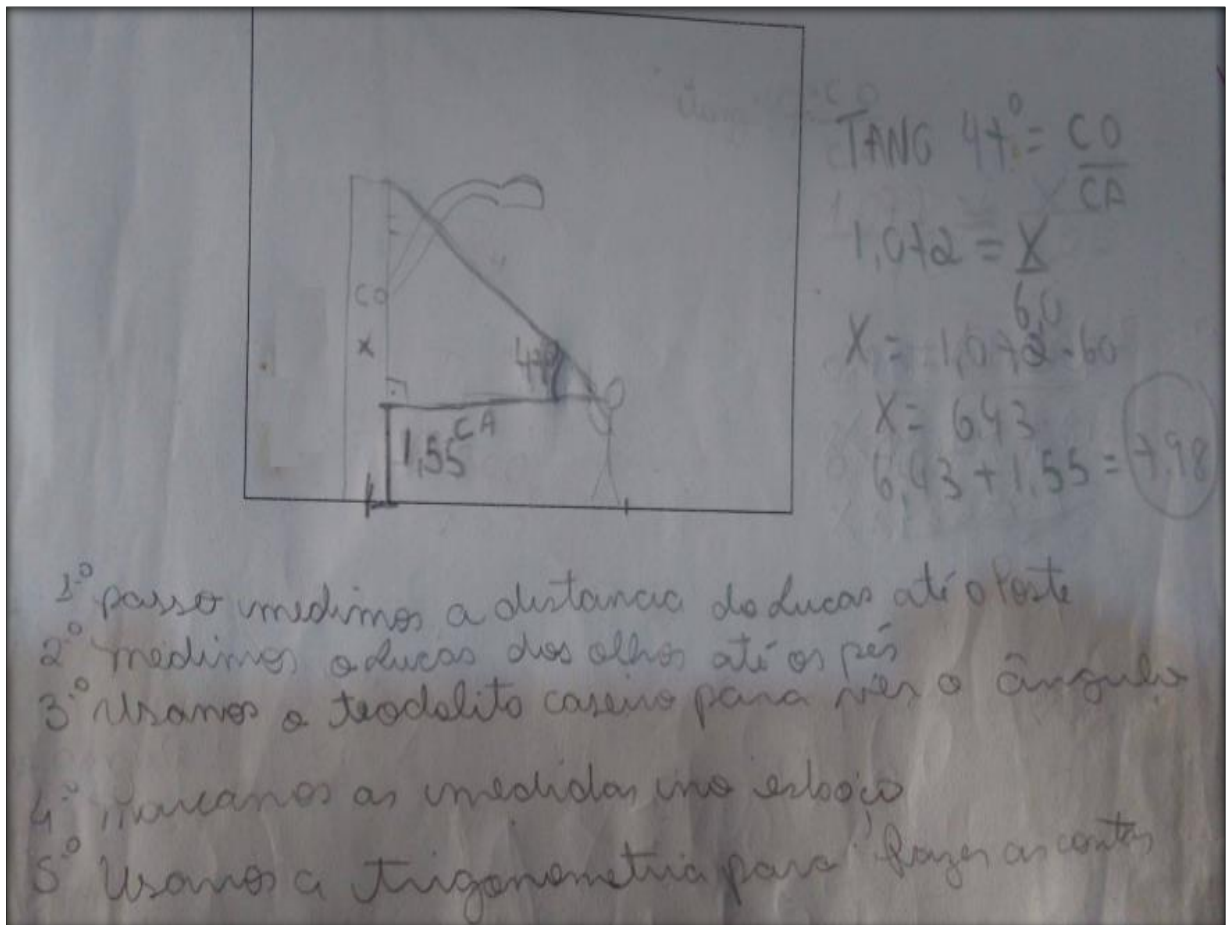 TANG 47° = CO
CA
1,072 = X
6,0
X = 1,072 · 60
X = 6,43
6,43 + 1,55 = 7,98
CO
X
47°
CA
1,55
1º passo medimos a distancia do Lucas até o poste
2º medimos o Lucas dos olhos até os pés
3º Usamos o teodolito caseiro para ver o ângulo
4º marcamos as medidas no esboço
5º Usamos a trigonometria para fazer as contas